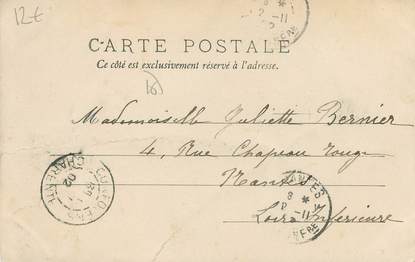 12€
CARTE POSTALE
Ce côté est exclusivement réservé à l'adresse.
Mademoiselle Juliette Bernier
4, Rue Chapeau Rouge
Nantes
Loire Inférieure
CONFOLENS
CHARENTE
02
NANTES
8 *
11